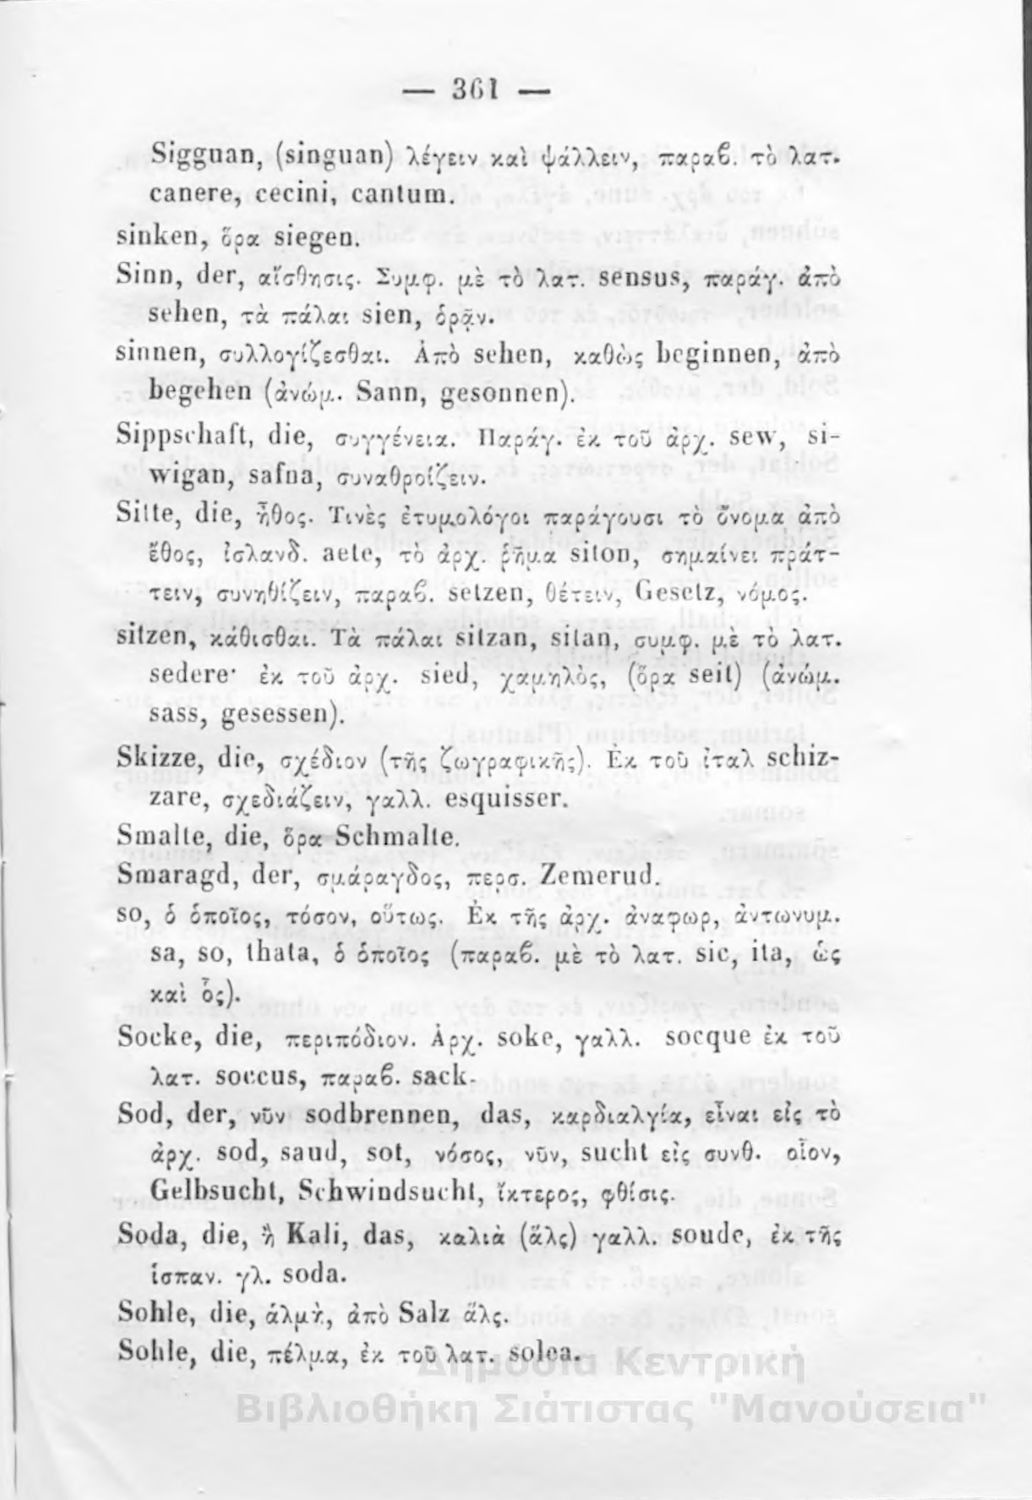 — 361 —
Sigguan, (singuan) λέγειν καὶ ψάλλειν, παραβ. τὸ λατ.
canere, cecini, cantum.
sinken, ὅρα siegen.
Sinn, der, αἴσθησις. Συμφ. μὲ τὸ λατ. sensus, παράγ. ἀπὸ
sehen, τὰ πάλαι sien, ὁρᾷν.
sinnen, συλλογίζεσθαι. Ἀπὸ sehen, καθὼς beginnen, ἀπὸ
begehen (ἀνώμ. Sann, gesonnen).
Sippschaft, die, συγγένεια. Παράγ. ἐκ τοῦ ἀρχ. sew, si-
wigan, safna, συναθροίζειν.
Sitte, die, ἦθος. Τινὲς ἐτυμολόγοι παράγουσι τὸ ὄνομα ἀπὸ
ἔθος, ἰσλανδ. aete, τὸ ἀρχ. ῥῆμα siton, σημαίνει πράτ-
τειν, συνηθίζειν, παραβ. setzen, θέτειν, Gesetz, νόμος.
sitzen, κάθισθαι. Τὰ πάλαι sitzan, sitan, συμφ. μὲ τὸ λατ.
sedere· ἐκ τοῦ ἀρχ. sied, χαμηλὸς, (ὅρα seit) (ἀνώμ.
sass, gesessen).
Skizze, die, σχέδιον (τῆς ζωγραφικῆς). Ἐκ τοῦ ἰταλ schiz-
zare, σχεδιάζειν, γαλλ. esquisser.
Smalte, die, ὅρα Schmalte.
Smaragd, der, σμάραγδος, περσ. Zemerud.
so, ὁ ὁποῖος, τόσον, οὕτως. Ἐκ τῆς ἀρχ. ἀναφωρ, ἀντωνυμ.
sa, so, thata, ὁ ὁποῖος (παραβ. μὲ τὸ λατ. sic, ita, ὡς
καὶ ὅς).
Socke, die, περιπόδιον. Ἀρχ. soke, γαλλ. socque ἐκ τοῦ
λατ. soccus, παραβ. sack.
Sod, der, νῦν sodbrennen, das, καρδιαλγία, εἶναι εἰς τὸ
ἀρχ. sod, saud, sot, νόσος, νῦν, sucht εἰς συνθ. οἷον,
Gelbsucht, Schwindsucht, ἴκτερος, φθίσις.
Soda, die, ἢ Kali, das, καλιὰ (ἅλς) γαλλ. soude, ἐκ τῆς
ἱσπαν. γλ. soda.
Sohle, die, ἁλμὴ, ἀπὸ Salz ἅλς.
Sohle, die, πέλμα, ἐκ τοῦ λατ. solea.
Δημόσια Κεντρική
Βιβλιοθήκη Σιάτιστας "Μανούσεια"